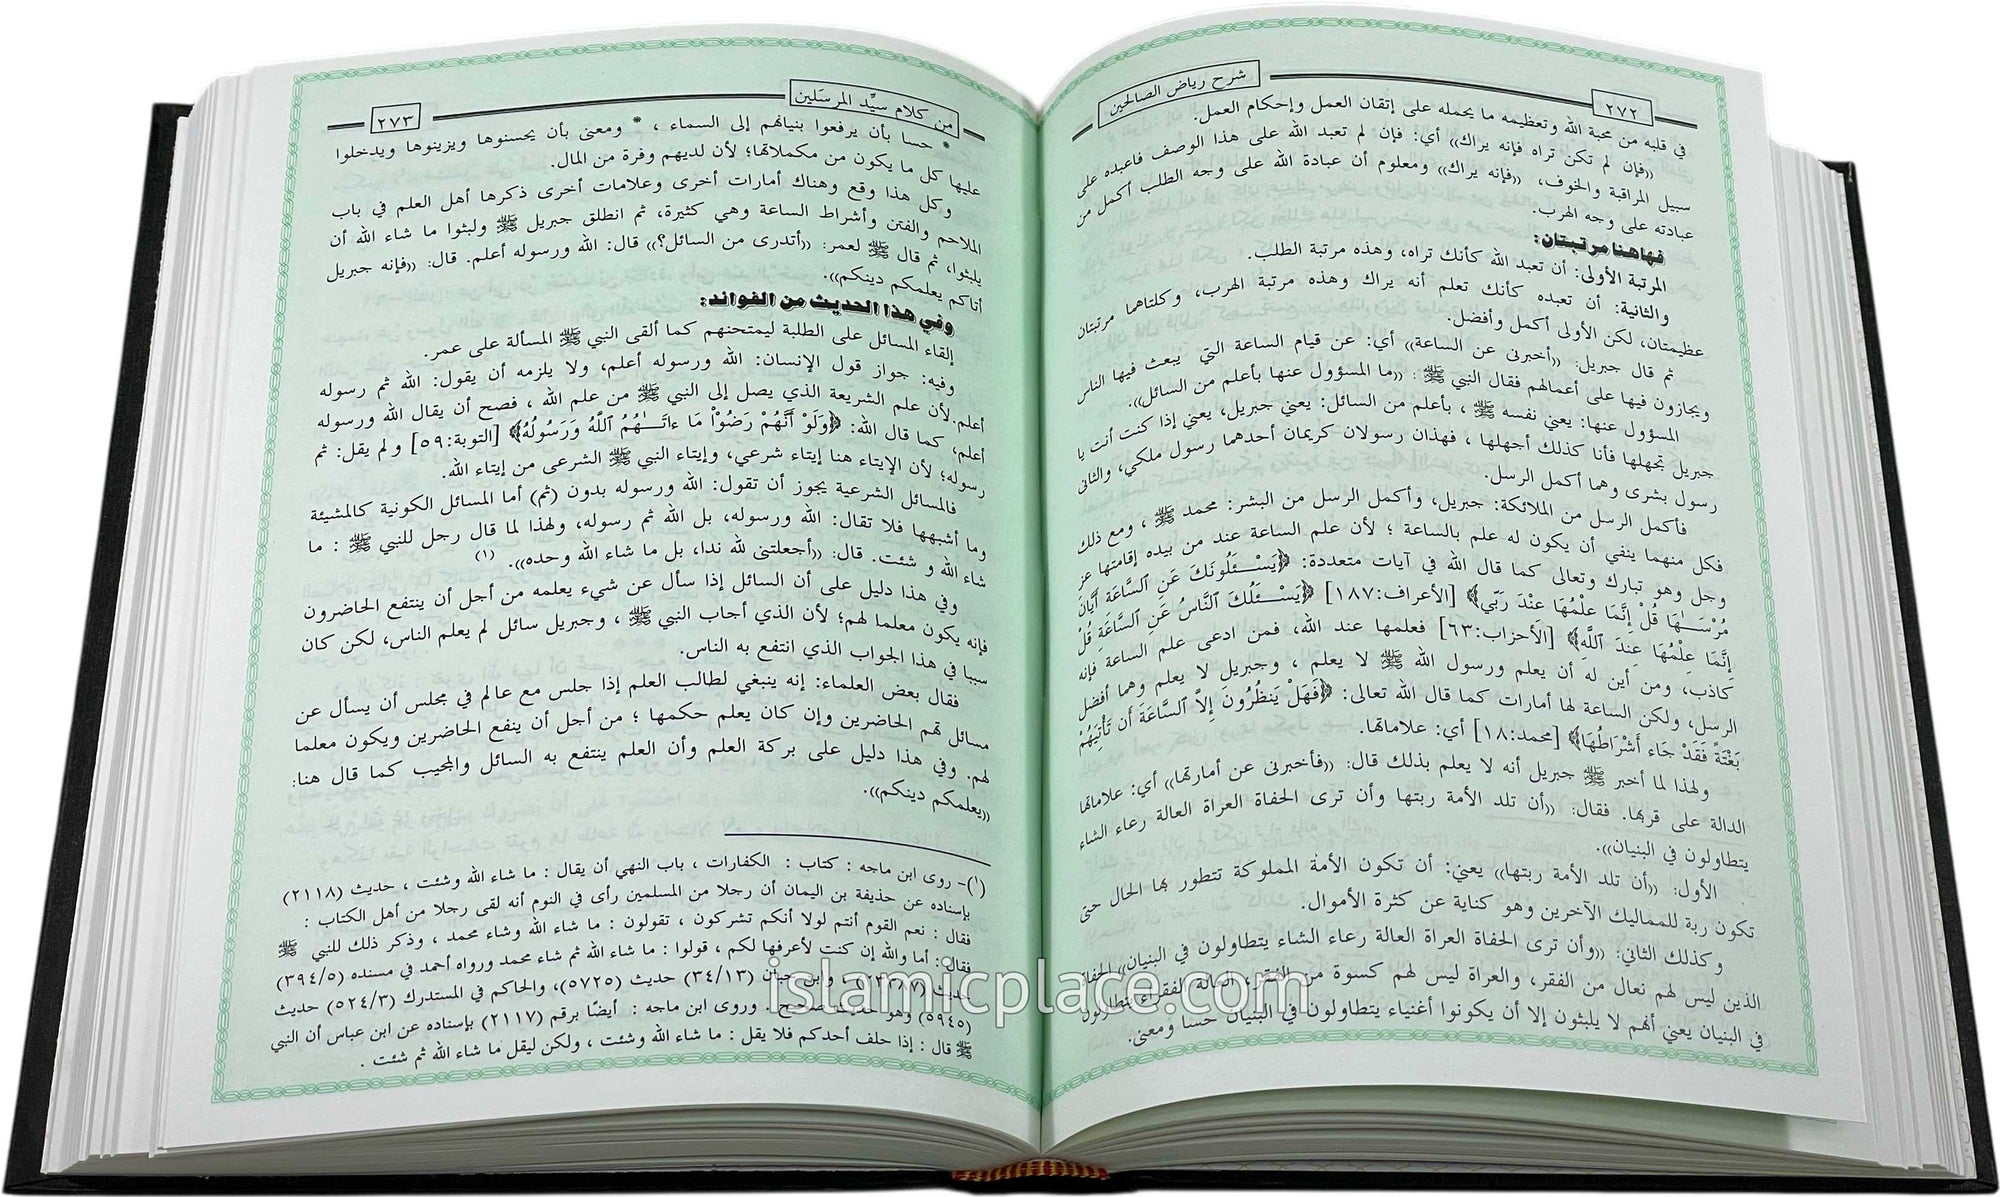 ٢٧٢
شرح رياض الصالحين
في قلبه من محبة الله وتعظيمه ما يحمله على إتقان العمل وإحكام العمل.
((فإن لم تكن تراه فإنه يراك)) أي: فإن لم تعبد الله على هذا الوصف فاعبده على
سبيل المراقبة والخوف، ((فإنه يراك)) ومعلوم أن عبادة الله على وجه الطلب أكمل من
عبادته على وجه الهرب.
فهاهنا مرتبتان:
المرتبة الأولى: أن تعبد الله كأنك تراه، وهذه مرتبة الطلب.
والثانية: أن تعبده كأنك تعلم أنه يراك وهذه مرتبة الهرب، وكلتاهما مرتبتان
عظيمتان، لكن الأولى أكمل وأفضل.
ثم قال جبريل: ((أخبرنى عن الساعة)) أي: عن قيام الساعة التي يبعث فيها الناس
ويجازون فيها على أعمالهم فقال النبي ﷺ : ((ما المسؤول عنها بأعلم من السائل)).
المسؤول عنها: يعني نفسه ﷺ ، بأعلم من السائل: يعني جبريل، يعني إذا كنت أنت يا
جبريل تجهلها فأنا كذلك أجهلها ، فهذان رسولان كريمان أحدهما رسول ملكي، والثانى
رسول بشرى وهما أكمل الرسل.
فأكمل الرسل من الملائكة: جبريل، وأكمل الرسل من البشر: محمد ﷺ ، ومع ذلك
فكل منهما ينفي أن يكون له علم بالساعة ؛ لأن علم الساعة عند من بيده إقامتها عز
وجل وهو تبارك وتعالى كما قال الله في آيات متعددة: ﴿يَسْـَٔلُونَكَ عَنِ ٱلسَّاعَةِ أَيَّانَ
مُرْسَـٰهَا قُلْ إِنَّمَا عِلْمُهَا عِندَ رَبِّي﴾ [الأعراف:١٨٧] ﴿يَسْـَٔلُكَ ٱلنَّاسُ عَنِ ٱلسَّاعَةِ قُلْ
إِنَّمَا عِلْمُهَا عِندَ ٱللَّهِ﴾ [الأحزاب:٦٣] فعلمها عند الله، فمن ادعى علم الساعة فإنه
كاذب، ومن أين له أن يعلم ورسول الله ﷺ لا يعلم ، وجبريل لا يعلم وهما أفضل
الرسل، ولكن الساعة لها أمارات كما قال الله تعالى: ﴿فَهَلْ يَنظُرُونَ إِلاَّ ٱلسَّاعَةَ أَن تَأْتِيَهُمْ
بَغْتَةً فَقَدْ جَاءَ أَشْرَاطُهَا﴾ [محمد:١٨] أي: علاماتها.
ولهذا لما أخبر ﷺ جبريل أنه لا يعلم بذلك قال: ((فأخبرنى عن أمارتها)) أي: علاماتها
الدالة على قربها. فقال: ((أن تلد الأمة ربتها وأن ترى الحفاة العراة العالة رعاء الشاء
يتطاولون في البنيان)).
الأول: ((أن تلد الأمة ربتها)) يعني: أن تكون الأمة المملوكة تتطور بها الحال حتى
تكون ربة للمماليك الآخرين وهو كناية عن كثرة الأموال.
وكذلك الثاني: ((وأن ترى الحفاة العراة العالة رعاء الشاء يتطاولون في البنيان)) الحفاة
الذين ليس لهم نعال من الفقر، والعراة ليس لهم كسوة من الفقر، العالة الفقراء يتطاولون
في البنيان يعني أنهم لا يلبثون إلا أن يكونوا أغنياء يتطاولون في البنيان حسا ومعنى.
من كلام سيِّد المرسَلين
٢٧٣
* حسا بأن يرفعوا بنيانهم إلى السماء ، * ومعنى بأن يحسنوها ويزينوها ويدخلوا
عليها كل ما يكون من مكملاتها؛ لأن لديهم وفرة من المال.
وكل هذا وقع وهناك أمارات أخرى وعلامات أخرى ذكرها أهل العلم في باب
الملاحم والفتن وأشراط الساعة وهي كثيرة، ثم انطلق جبريل ﷺ ولبثوا ما شاء الله أن
يلبثوا، ثم قال ﷺ لعمر: ((أتدرى من السائل؟)) قال: الله ورسوله أعلم. قال: ((فإنه جبريل
أتاكم يعلمكم دينكم)).
وفي هذا الحديث من الفوائد:
إلقاء المسائل على الطلبة ليمتحنهم كما ألقى النبي ﷺ المسألة على عمر.
وفيه: جواز قول الإنسان: الله ورسوله أعلم، ولا يلزمه أن يقول: الله ثم رسوله
أعلم. لأن علم الشريعة الذي يصل إلى النبي ﷺ من علم الله ، فصح أن يقال الله ورسوله
أعلم، كما قال الله: ﴿وَلَوْ أَنَّهُمْ رَضُوْاْ مَا ءاتَـٰهُمُ ٱللَّهُ وَرَسُولُهُ﴾ [التوبة:٥٩] ولم يقل: ثم
رسوله؛ لأن الإيتاء هنا إيتاء شرعي، وإيتاء النبي ﷺ الشرعى من إيتاء الله.
فالمسائل الشرعية يجوز أن تقول: الله ورسوله بدون (ثم) أما المسائل الكونية كالمشيئة
وما أشبهها فلا تقال: الله ورسوله، بل الله ثم رسوله، ولهذا لما قال رجل للنبي ﷺ : ما
شاء الله و شئت. قال: ((أجعلتنى لله ندا، بل ما شاء الله وحده)). (١)
وفي هذا دليل على أن السائل إذا سأل عن شيء يعلمه من أجل أن ينتفع الحاضرون
فإنه يكون معلما لهم؛ لأن الذي أجاب النبي ﷺ ، وجبريل سائل لم يعلم الناس، لكن كان
سببا في هذا الجواب الذي انتفع به الناس.
فقال بعض العلماء: إنه ينبغي لطالب العلم إذا جلس مع عالم في مجلس أن يسأل عن
مسائل تهم الحاضرين وإن كان يعلم حكمها ؛ من أجل أن ينفع الحاضرين ويكون معلما
لهم. وفي هذا دليل على بركة العلم وأن العلم ينتفع به السائل والمجيب كما قال هنا:
((يعلمكم دينكم)).
(١)- روى ابن ماجه : كتاب : الكفارات ، باب النهي أن يقال : ما شاء الله وشئت ، حديث (٢١١٨)
بإسناده عن حذيفة بن اليمان أن رجلا من المسلمين رأى في النوم أنه لقى رجلا من أهل الكتاب :
فقال : نعم القوم أنتم لولا أنكم تشركون ، تقولون : ما شاء الله وشاء محمد ، وذكر ذلك للنبي ﷺ
فقال : أما والله إن كنت لأعرفها لكم ، قولوا : ما شاء الله ثم شاء محمد ورواه أحمد في مسنده (٣٩٤/٥)
حديث وابن حبان (٣٤/١٣) حديث (٥٧٢٥)، والحاكم في المستدرك (٥٢٤/٣) حديث
(٥٩٤٥) وهو حديث صحيح . وروى ابن ماجه : أيضًا برقم (٢١١٧) بإسناده عن ابن عباس أن النبي
ﷺ قال : إذا حلف أحدكم فلا يقل : ما شاء الله وشئت ، ولكن ليقل ما شاء الله ثم شئت .
islamicplace.com